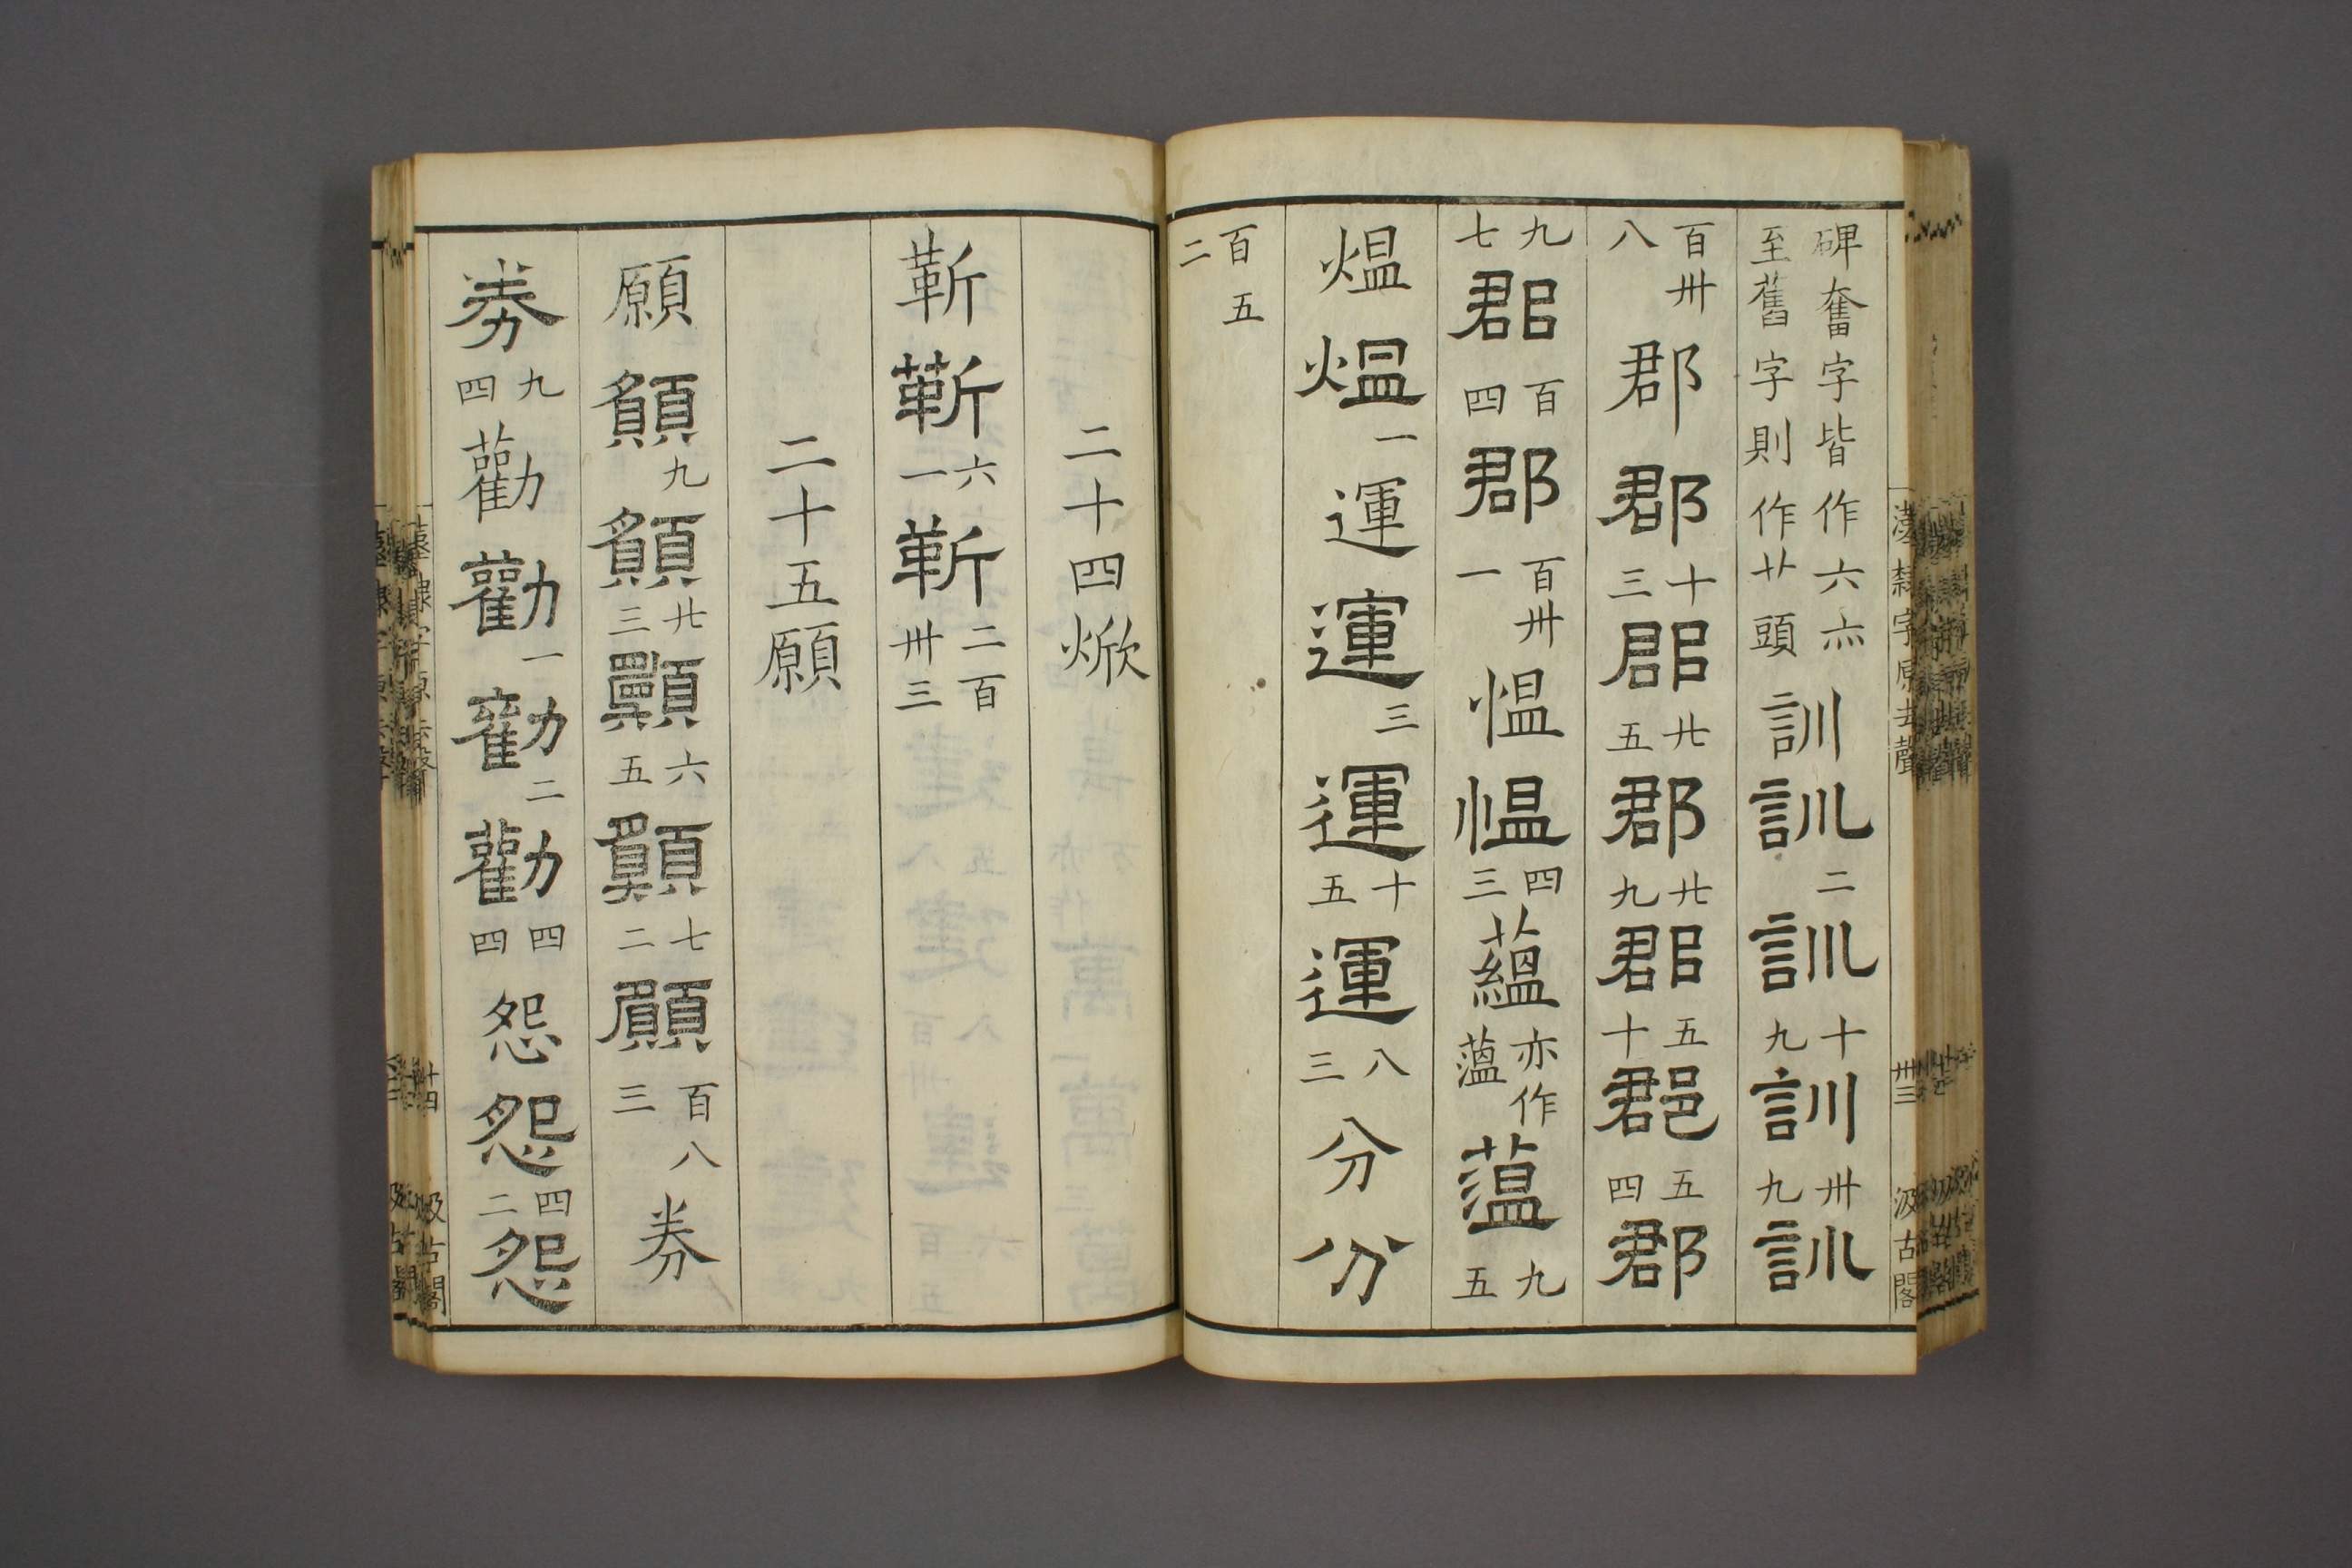 碑奮字皆作六灬至舊字則作艹頭訓訓二訓十九訓卅九訓
百卅八郡郡十三郡廿五郡廿九郡五十郡五四郡
九七郡百四郡百卅一愠愠四三蘊亦作薀薀九五
熅熅一運運三運十五運八三分分
百五二
漢隸字原去聲 卅三 汲古閣
二十四焮
靳靳六一靳二百卅三
二十五願
願願九願廿三願六五願七二願百八三券
券九四勸勸一勸二勸四四怨怨四二怨